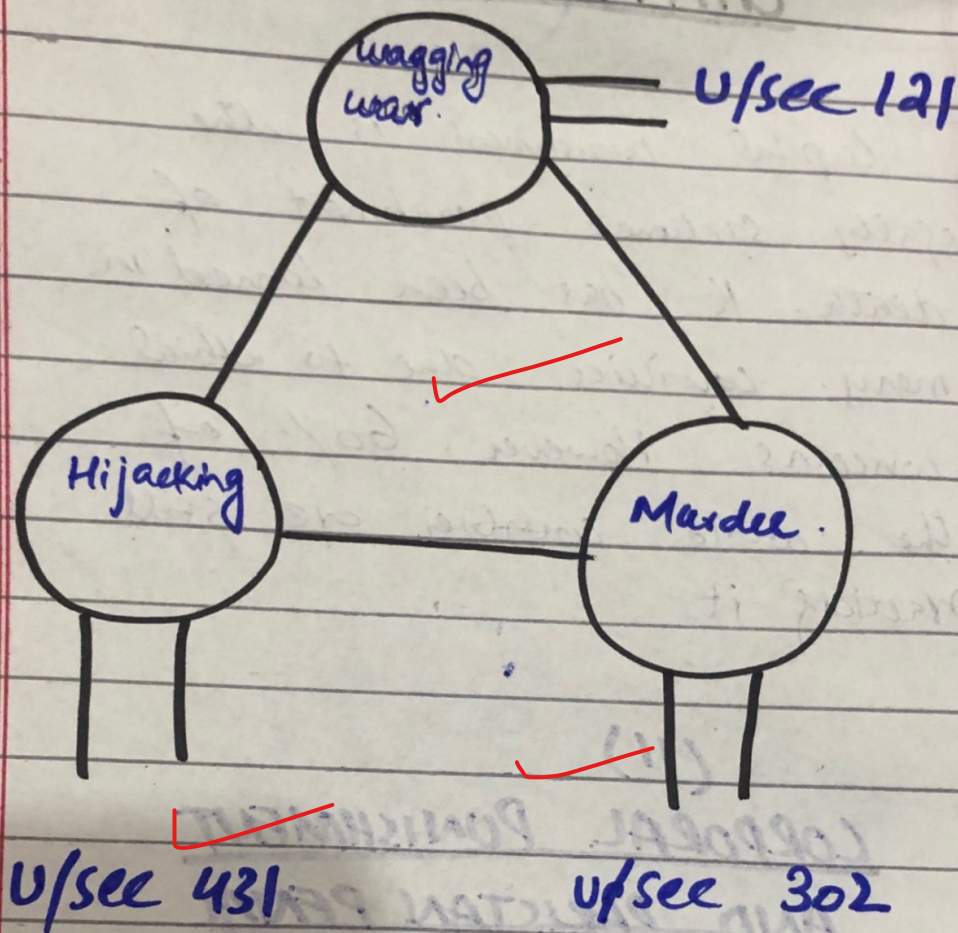 wagging
war.
U/sec 121
Hijacking
Murder.
U/sec 431
u/sec 302